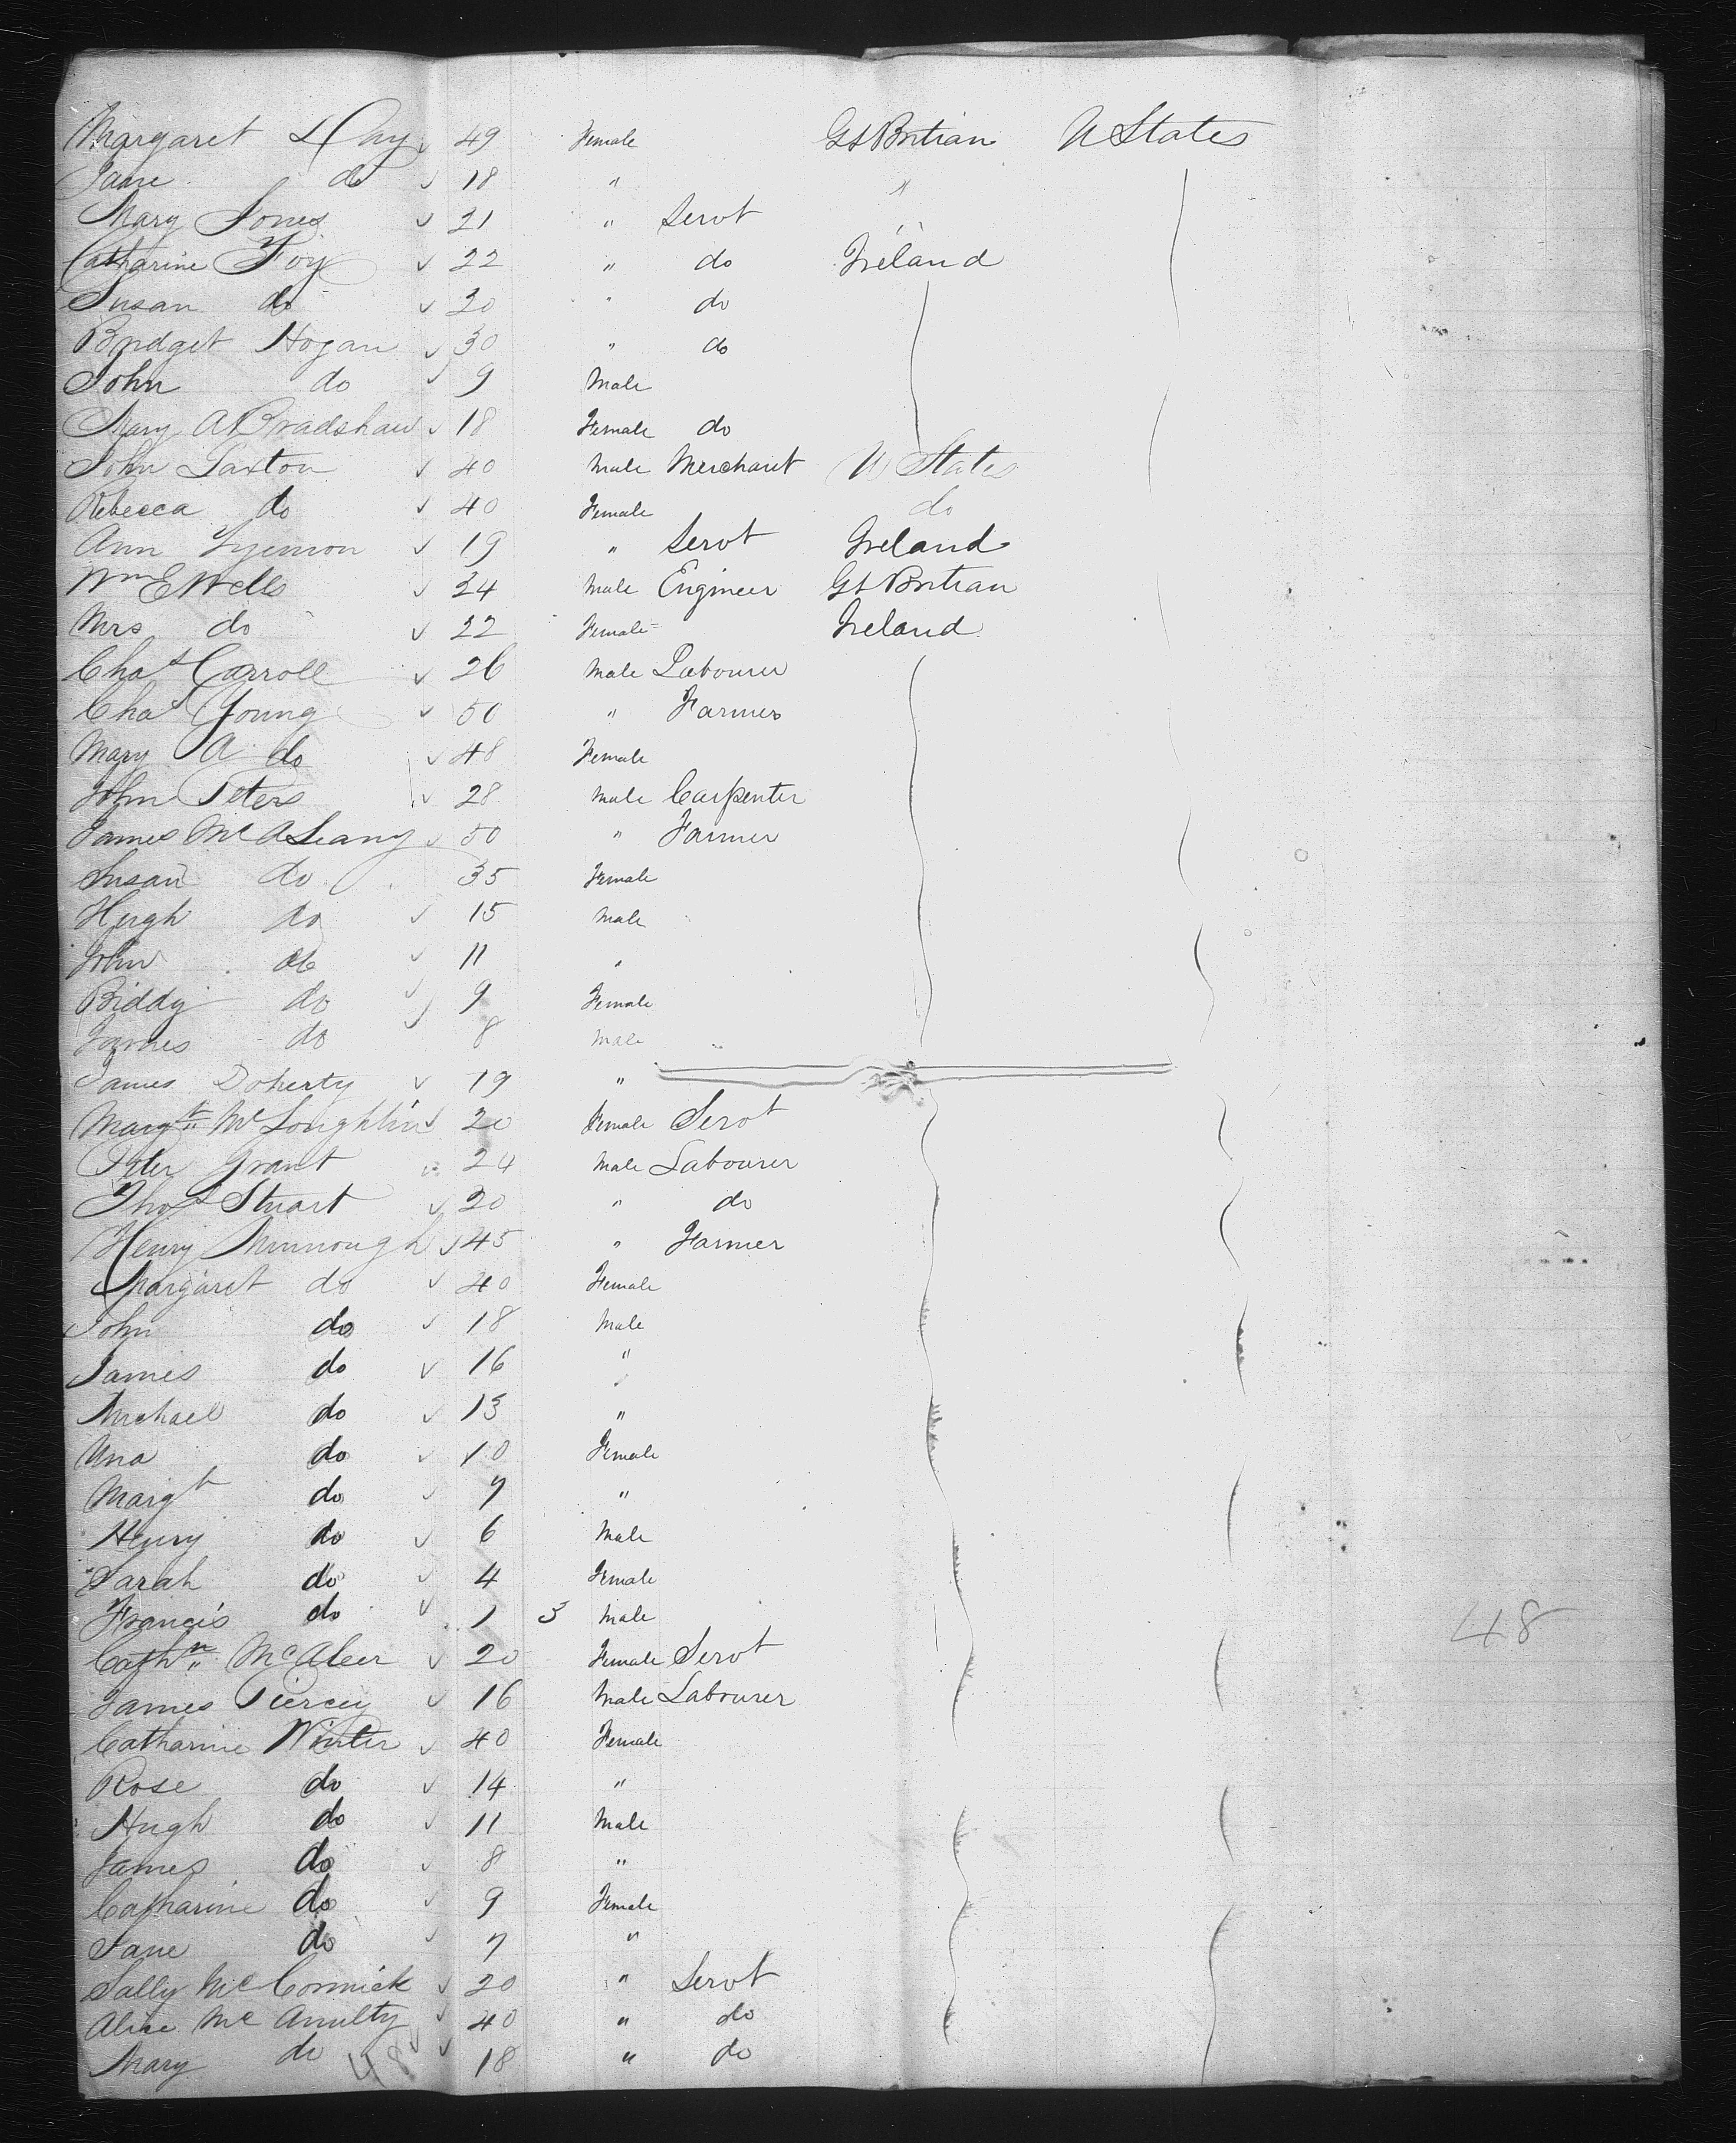 Margaret Day 49 Female Gt Britian U States
Jane do 18 " "
Mary Jones 21 " Servt "
Catharine Foy 22 " do Ireland
Susan do 20 " do
Bridget Hogan 30 " do
John do 9 Male
Mary A Bradshaw 18 Female do
John Saxton 40 Male Merchant U States
Rebecca do 40 Female do
Ann 19 " Servt Ireland
Wm E Wells 24 Male Engineer Gt Britian
Mrs do 22 Female Ireland
Chas Carroll 26 Male Labourer
Chas Young 50 " Farmer
Mary A do 48 Female
John Peters 28 Male Carpenter
James 50 " Farmer
Susan do 35 Female
Hugh do 15 Male
John do 11 "
Biddy do 9 Female
James do 8 Male
James Doherty 19 "
Margt McLoughlin 20 Female Servt
Peter Grant 24 Male Labourer
Thos Stuart 20 " do
Henry Minnough 45 " Farmer
Margaret do 40 Female
John do 18 Male
James do 16 "
Michael do 13 "
Una do 10 Female
Margt do 7 "
Henry do 6 Male
Sarah do 4 Female
Francis do 1 3 Male
Cathn McAleer 20 Female Servt
James Piercy 16 Male Labourer
Catharine Winter 40 Female
Rose do 14 "
Hugh do 11 Male
James do 8 "
Catharine do 9 Female
Jane do 7 "
Sally McCormick 20 " Servt
Alice McAnulty 40 " do
Mary do 18 " do
48
48